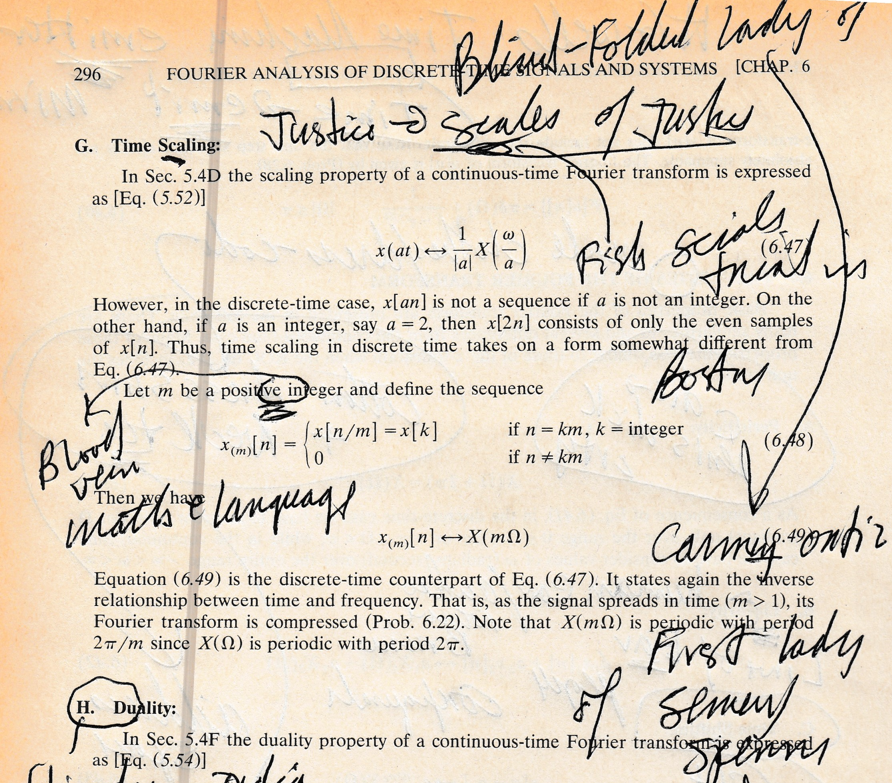 Blind-Folded lady of
296 FOURIER ANALYSIS OF DISCRETE-TIME SIGNALS AND SYSTEMS [CHAP. 6
Justice → scales of Justice
G. Time Scaling:
In Sec. 5.4D the scaling property of a continuous-time Fourier transform is expressed
as [Eq. (5.52)]
x(at) ↔ 1/|a| X(ω/a) (6.47)
Fish
trial
However, in the discrete-time case, x[an] is not a sequence if a is not an integer. On the
other hand, if a is an integer, say a = 2, then x[2n] consists of only the even samples
of x[n]. Thus, time scaling in discrete time takes on a form somewhat different from
Eq. (6.47).
Boston
Let m be a positive integer and define the sequence
x(m)[n] = { x[n/m] = x[k] if n = km, k = integer
0 if n ≠ km (6.48)
Blood
vein
Then we have
maths language
x(m)[n] ↔ X(mΩ) (6.49)
Equation (6.49) is the discrete-time counterpart of Eq. (6.47). It states again the inverse
relationship between time and frequency. That is, as the signal spreads in time (m > 1), its
Fourier transform is compressed (Prob. 6.22). Note that X(mΩ) is periodic with period
2π/m since X(Ω) is periodic with period 2π.
First lady
of
H. Duality:
In Sec. 5.4F the duality property of a continuous-time Fourier transform is expressed
as [Eq. (5.54)]